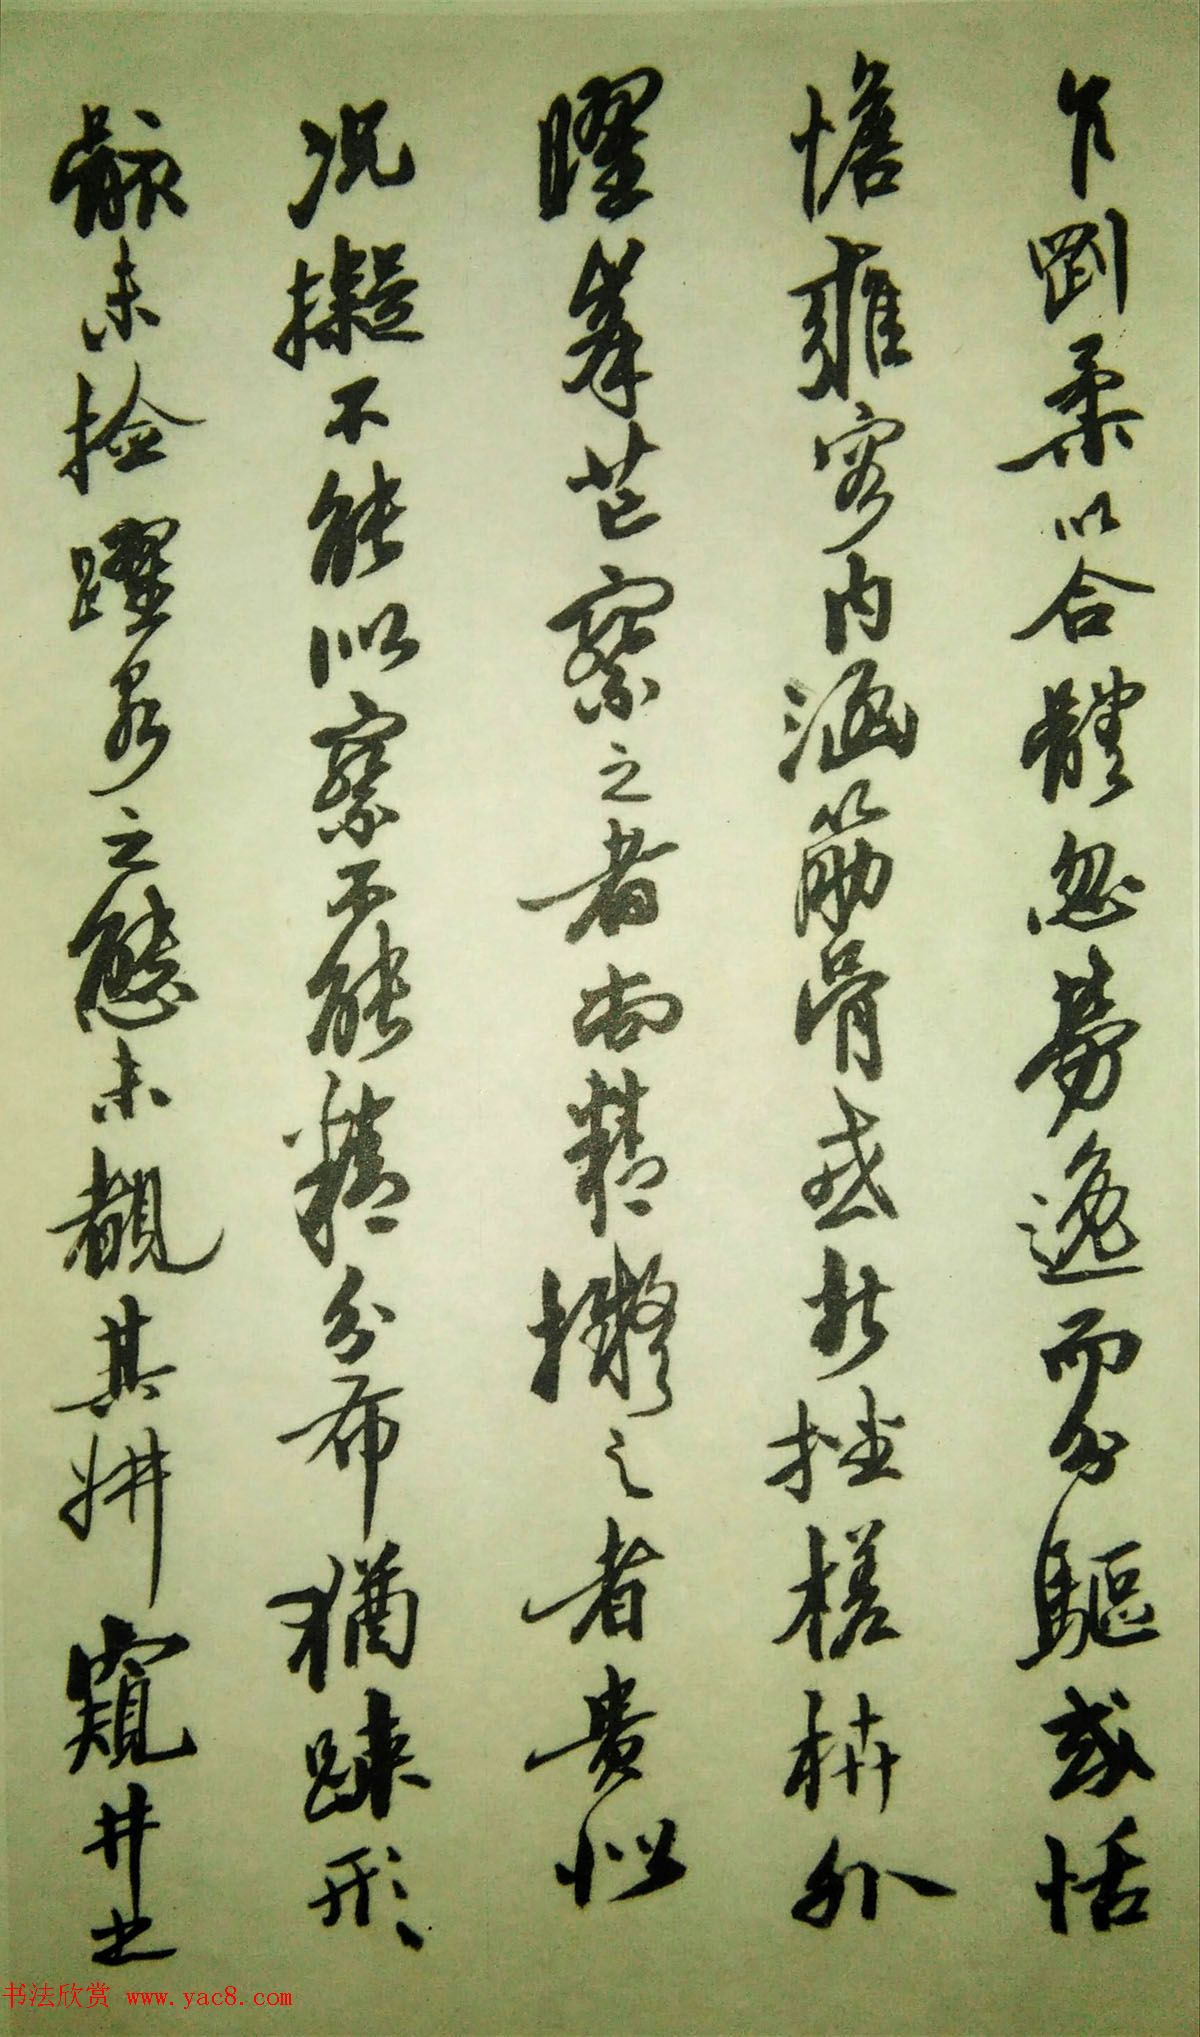 乍剛柔以合體忽勞逸而分驅或恬
憺雍容内涵筋骨或折挫槎枿外
曜峯芒察之者尚精擬之者貴似
况擬不能似察不能精分布猶疎形
骸未撿躍泉之態未覩其妍窺井之
书法欣赏 www.yac8.com